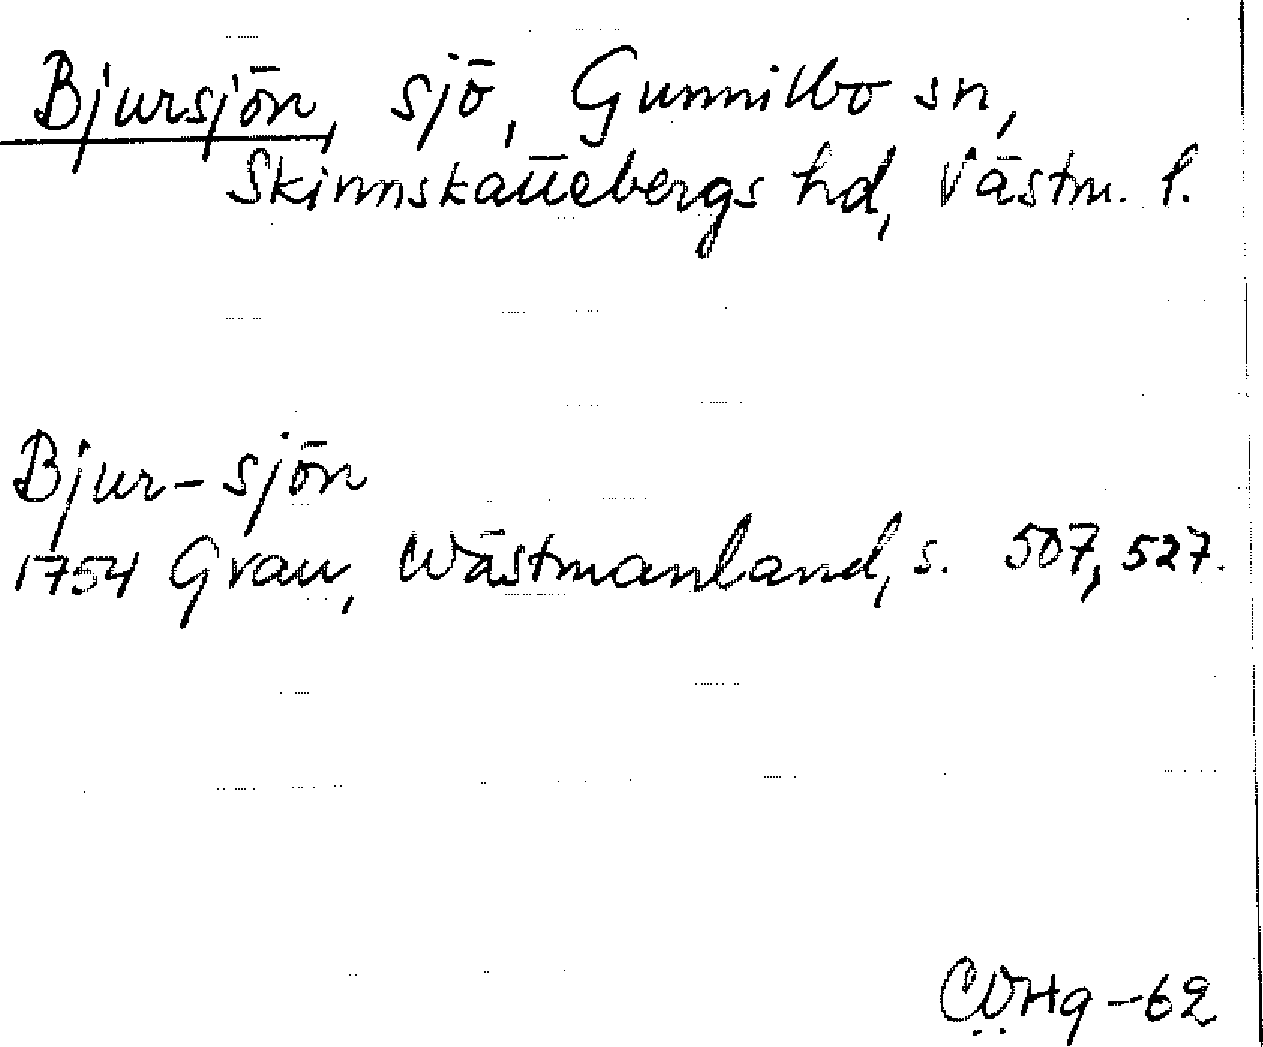 Bjursjön, sjö, Gunnilbo sn,
Skinnskattebergs hd, Västm. l.
Bjur-sjön
1754 Grau, Wästmanland, s. 507, 527.
-62